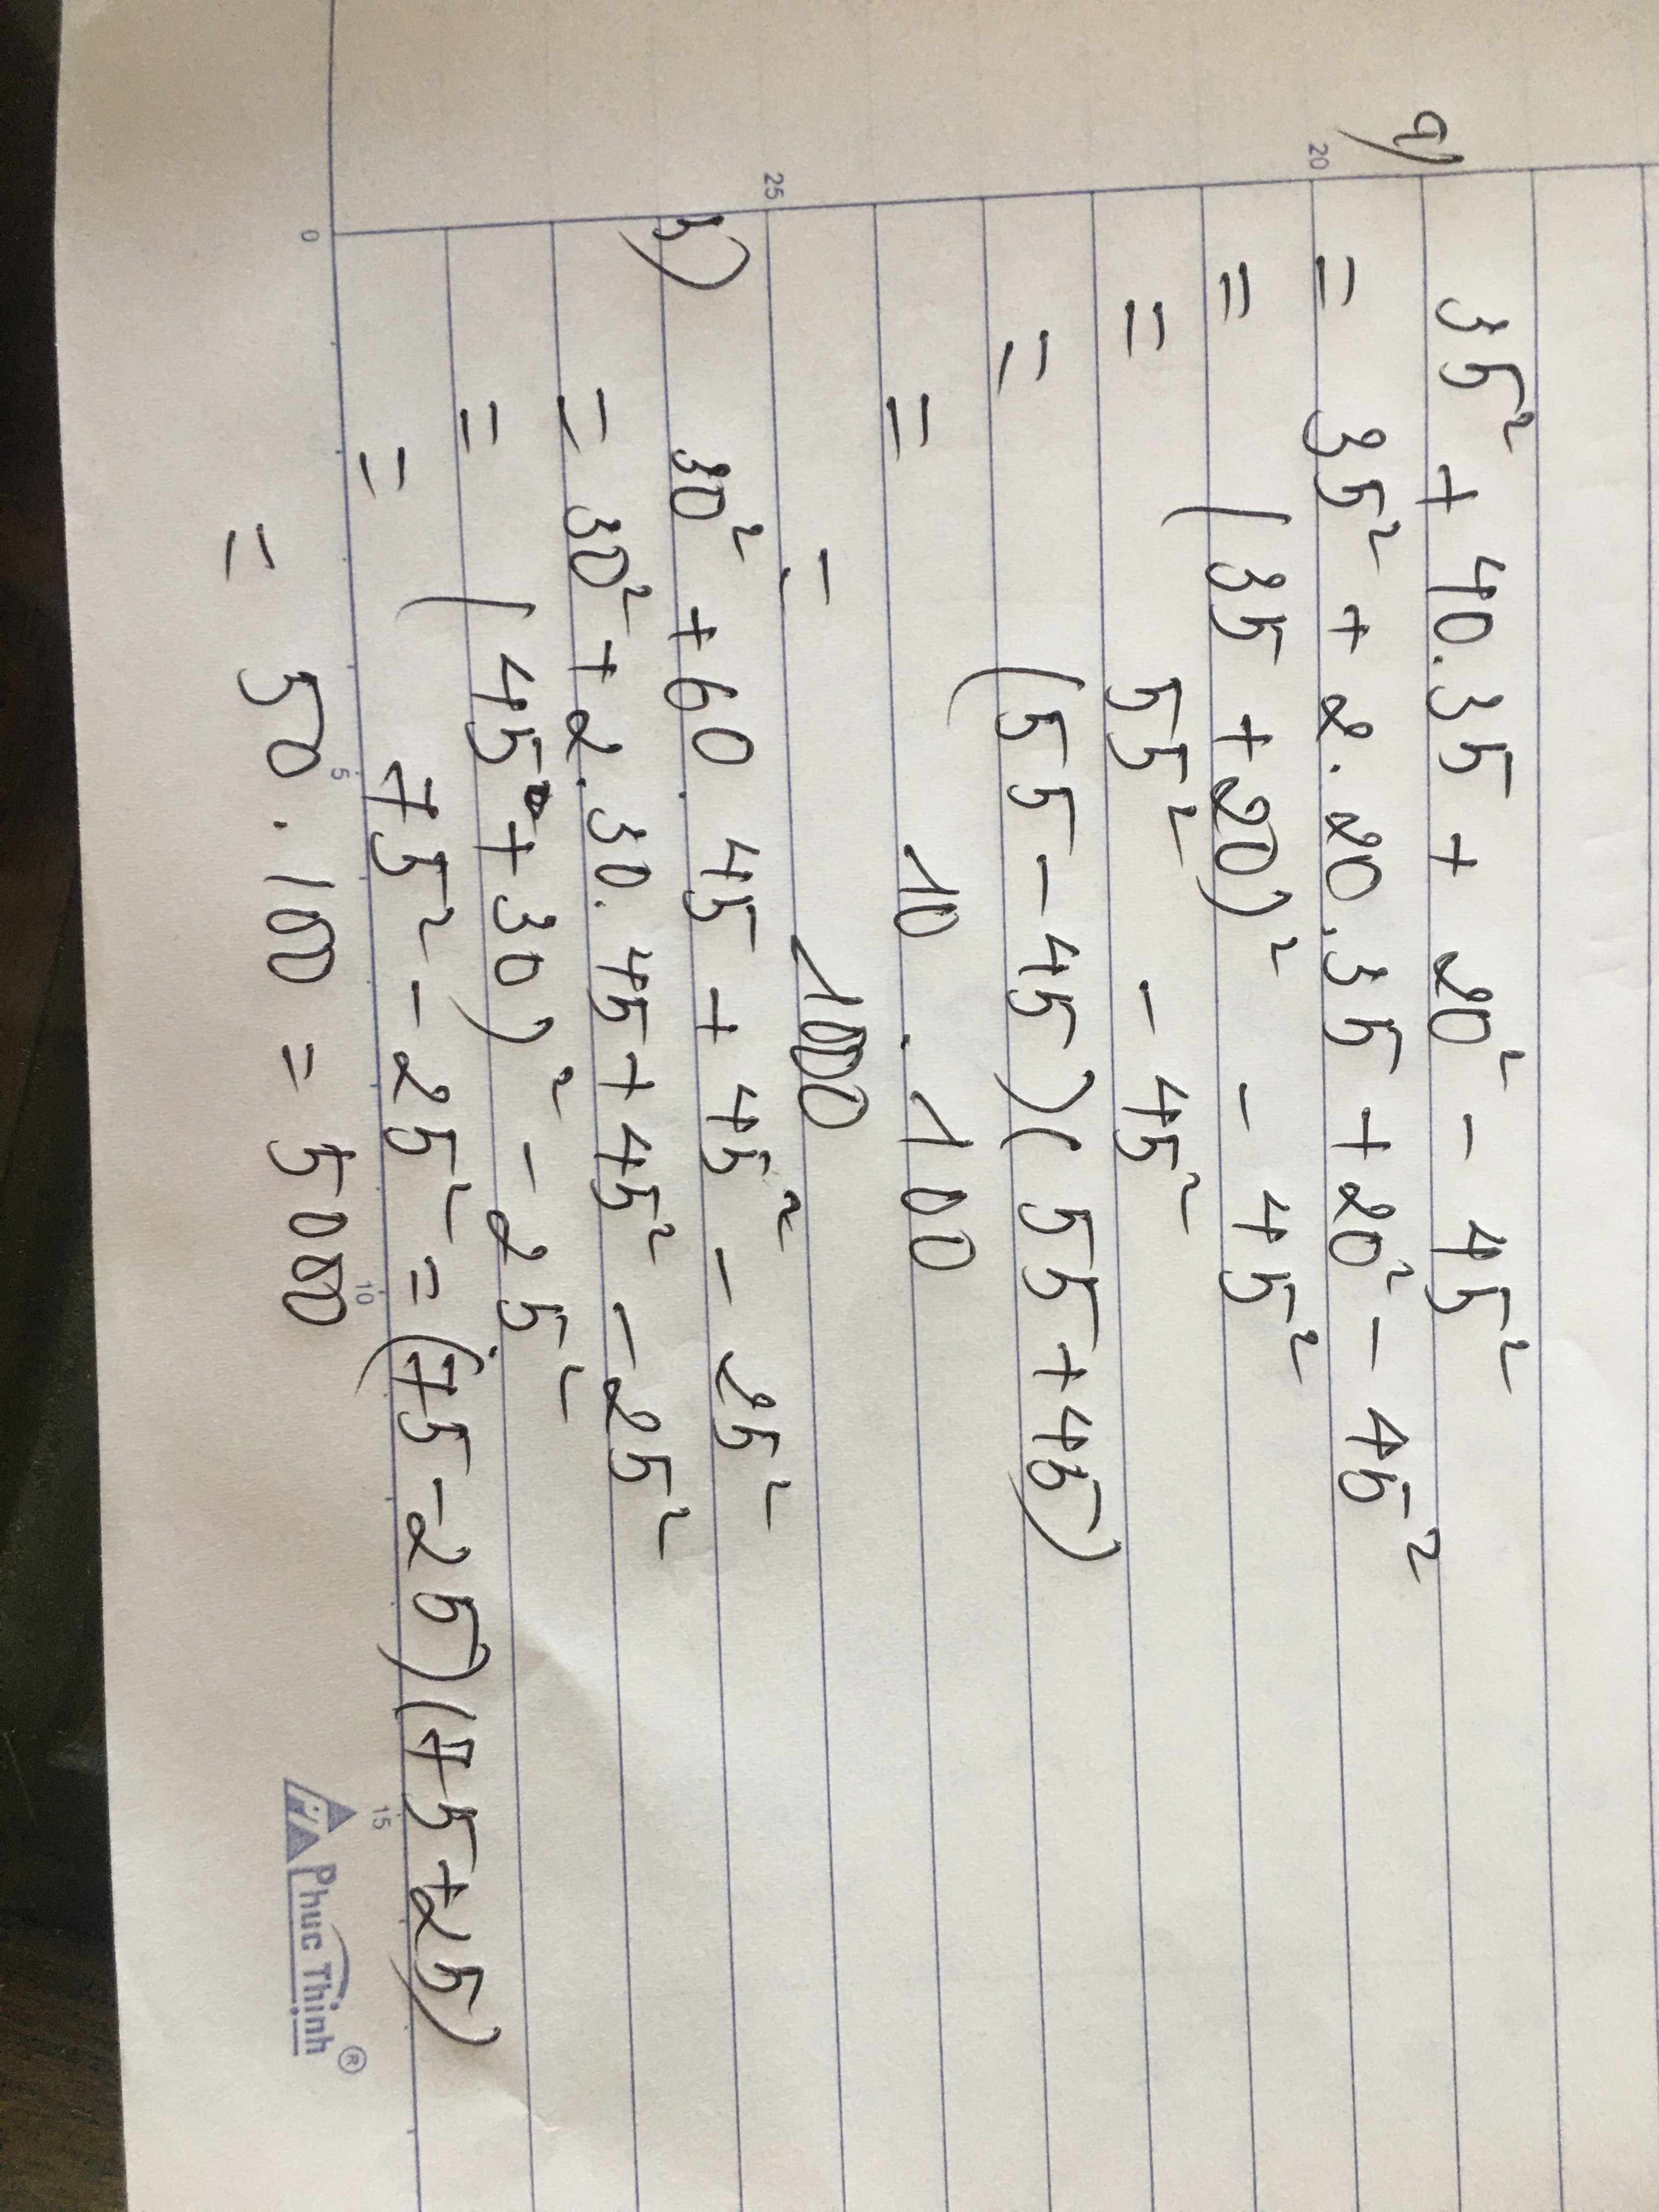 a) 35² + 40.35 + 20² - 45²
= 35² + 2.20.35 + 20² - 45²
= (35 + 20)² - 45²
= 55² - 45²
= (55 - 45)(55 + 45)
= 10 . 100
= 1000
b) 30² + 60 . 45 + 45² - 25²
= 30² + 2.30.45 + 45² - 25²
= (45 + 30)² - 25²
= 75² - 25² = (75 - 25)(75 + 25)
= 50.100 = 5000
20
25
0
5
10
15
Phuc Thinh ®